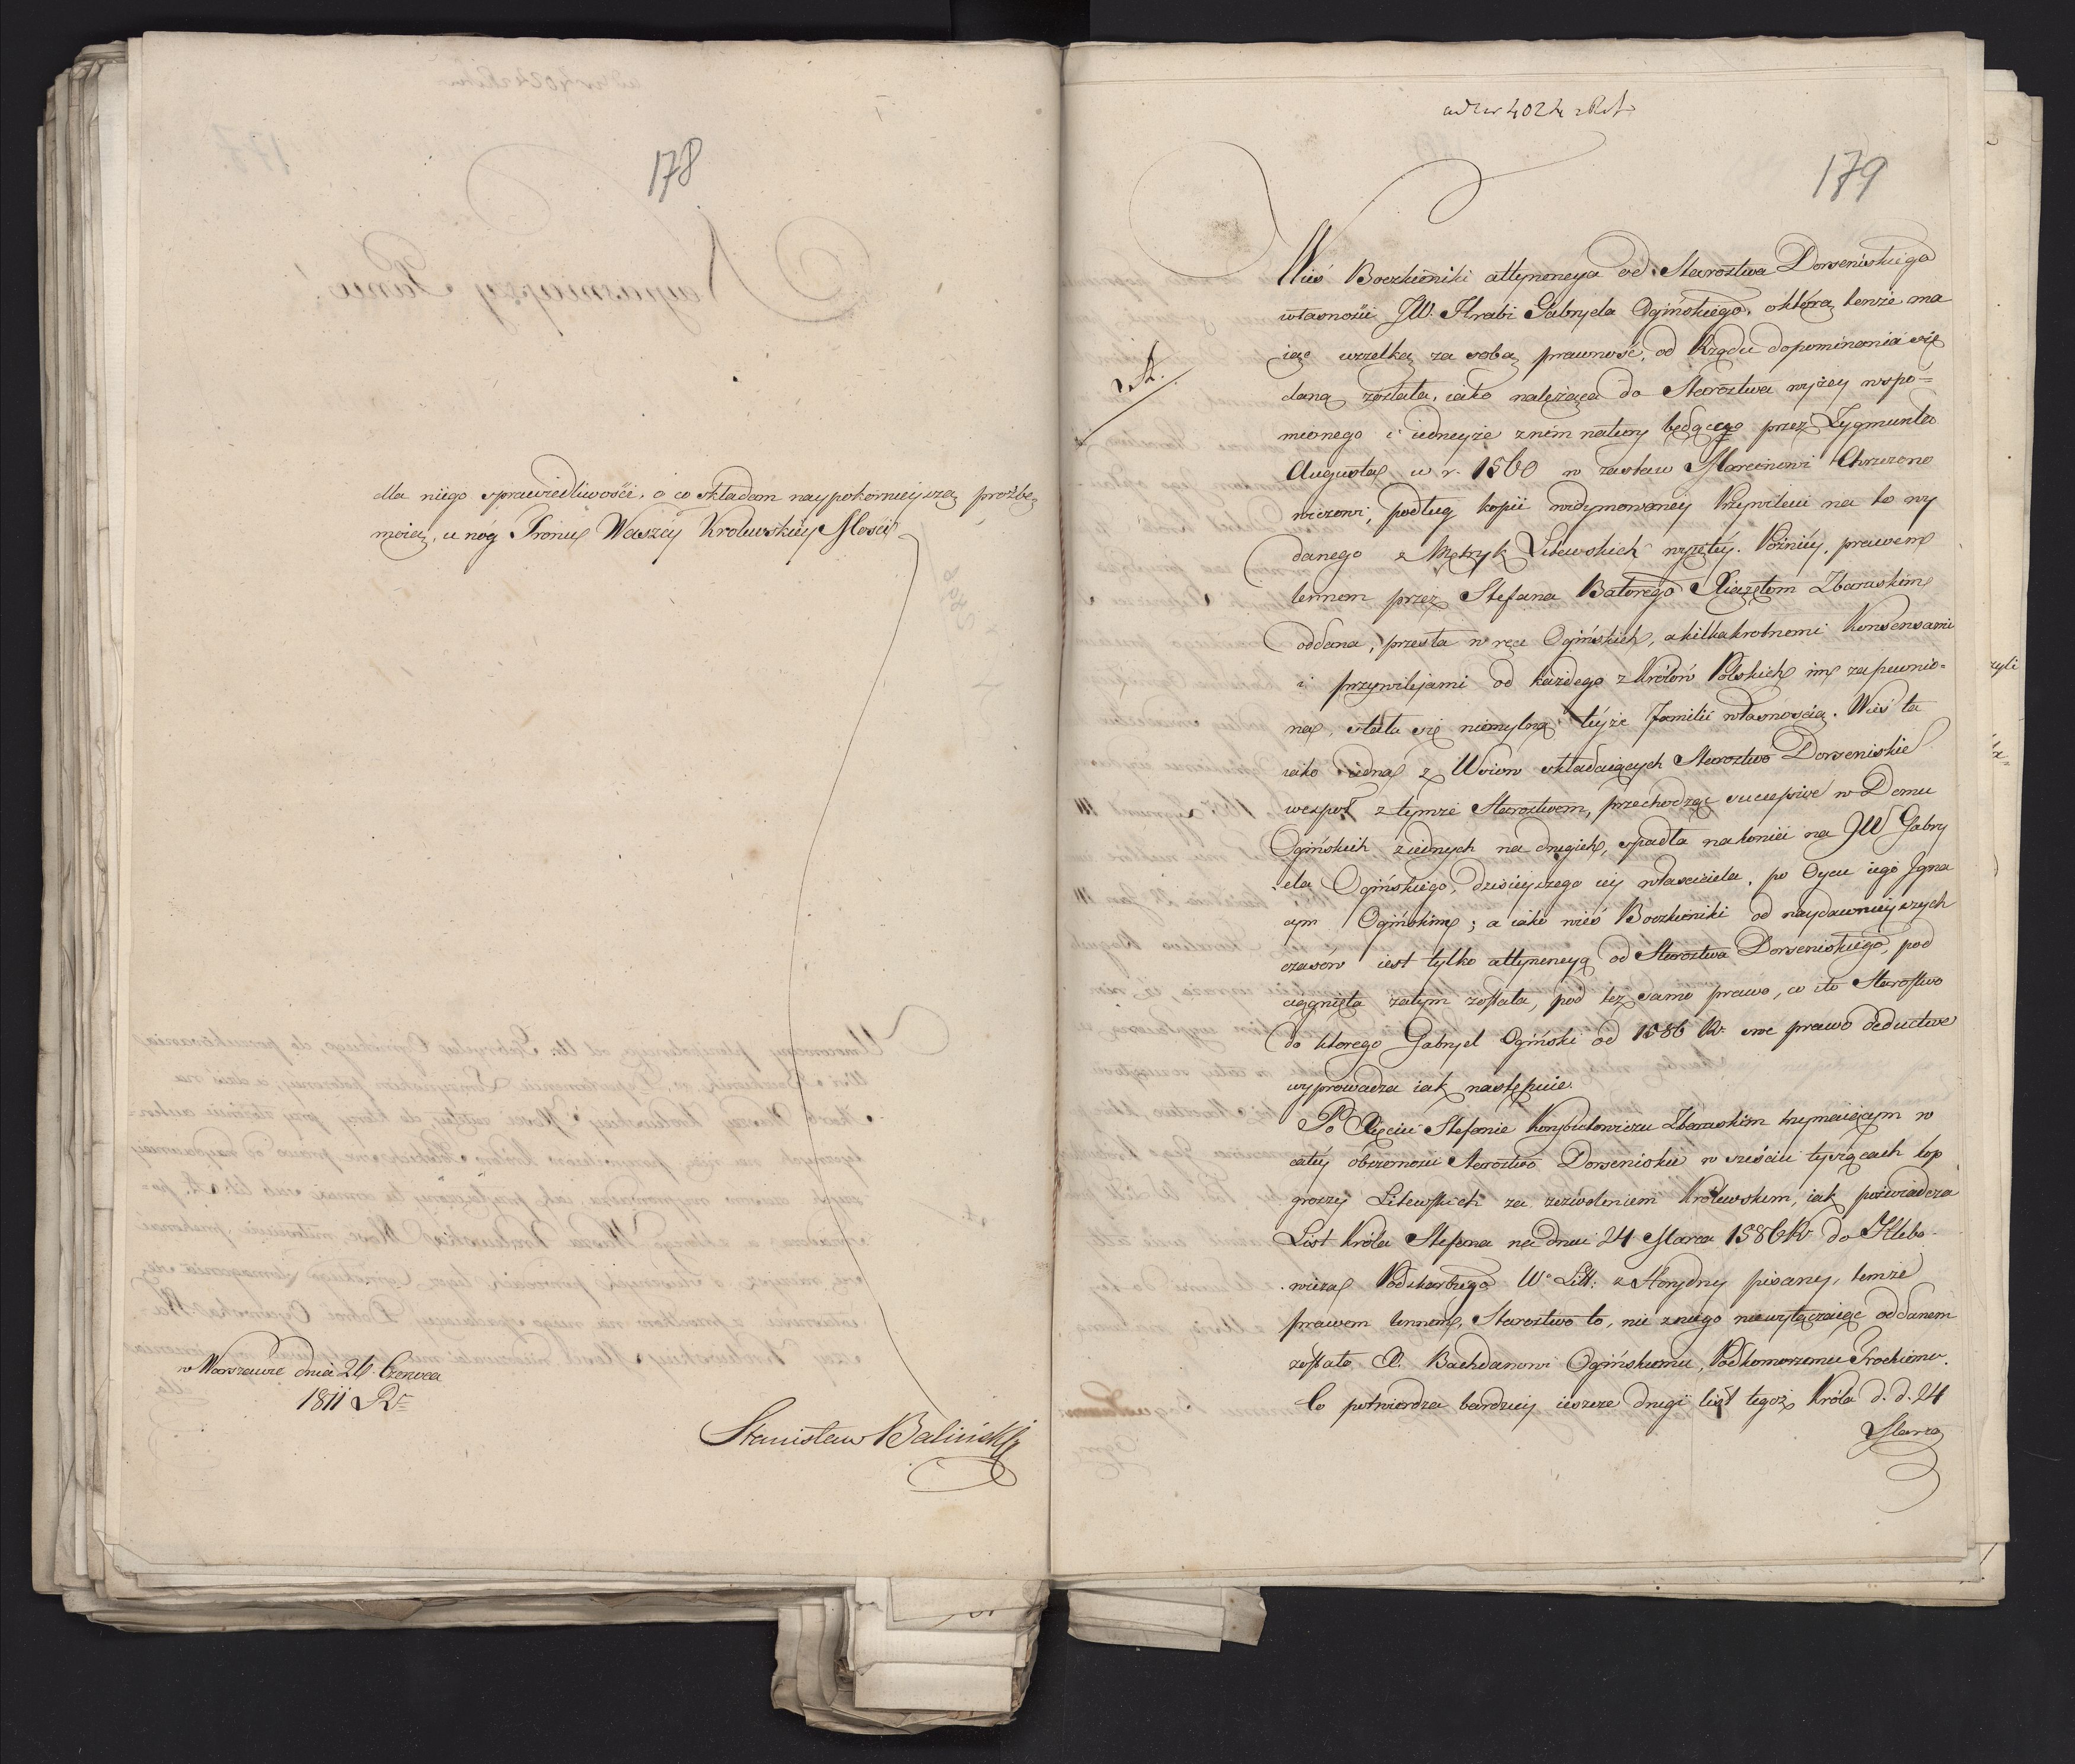 178
dla niego sprawiedliwości, o co składam naypokornieyszą proźbę
moię, u nóg Tronu Waszéy Krolewskiéy Mości
w Warszawie dnia 26 Czerwca
1811 R.
Stanisław Baliński
ad Nr 4024
179
A.
Wieś Boczkieniki attynencya od Starostwa Dorseniskiego
własności JW. Hrabi Gabryela Ogińskiego, o którą tenże ma
iąc wszelką za sobą prawność, od Rządu dopominania się
daną została, iako należąca do Starostwa wyżey wspo=
mionego i iedneyże z nim natury będącego przez Zygmunta
Augusta w r. 1560 w zastaw Marcinowi Chrszczono
wiczowi, podług kopii widymowaney Przywileiu na to wy
danego z Metryk Litewskich wyiętéy. Pózniéy, prawem
lennem przez Stefana Batorego Xiążętom Zbaraskim
oddana, przeszła w ręce Ogińskich, a kilkakrotnemi Konsensami
i przywilejami od każdego z Królów Polskich im zapewnio=
na, stała się niemylną téyże Familii własnością. Wieś ta
iako iedna z Wsiow składaiących Starostwo Dorseniskie
wespoł z tymże Starostwem, przechodząc sucessive w Domu
Ogińskich z iednych na drugich, spadła nakoniec na JW Gabry
ela Ogińskiego, dzisieyszego iey własciciela, po Oycu iego Igna
cym Ogińskim; a iako wieś Boczkieniki od naydawnieyszych
czasów iest tylko attynencyą od Starostwa Dorseniskiego, pod
ciągnięta zatym została, pod też samo prawo, co i to Starostwo
do ktorego Gabryel Ogiński od 1586 R. swe prawo deductive
wyprowadza iak następuie.
Po Xięciu Stefanie Korybutowiczu Zbaraskim trzymaiącym w
całéy obszernosci Starostwo Dorseniskie w sześciu tysiącach kop
groszy Litewskich za zezwoleniem Krolewskim, iak poświadcza
List Króla Stefana na dniu 24 Marca 1586 R. do Hlebo-
wicza Podskarbiego W. Litt: z Horydny pisany, temże
prawem lennem, Starostwo to, nic z niego niewyłączaiąc oddanem
zostało P. Bachdanowi Ogińskiemu, Podkomorzemu Trockiemu.
Co potwierdza bardziey ieszcze drugi list tegoż Króla d. d. 24
Marca